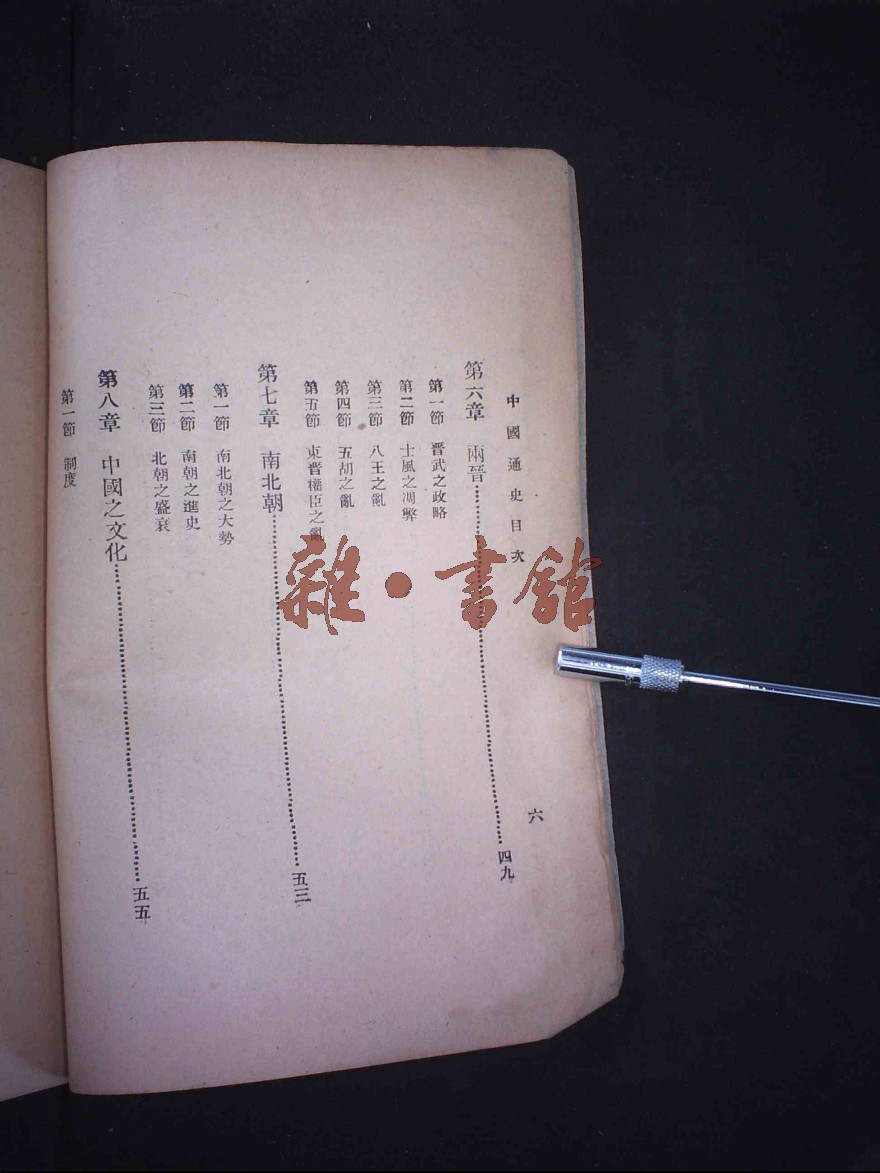 中國通史目次
六
第六章 兩晉……………………四九
第一節 晋武之政略
第二節 士風之凋弊
第三節 八王之亂
第四節 五胡之亂
第五節 東晋權臣之亂
第七章 南北朝……………………五三
第一節 南北朝之大勢
第二節 南朝之進史
第三節 北朝之盛衰
第八章 中國之文化……………………五五
第一節 制度
雜·書館